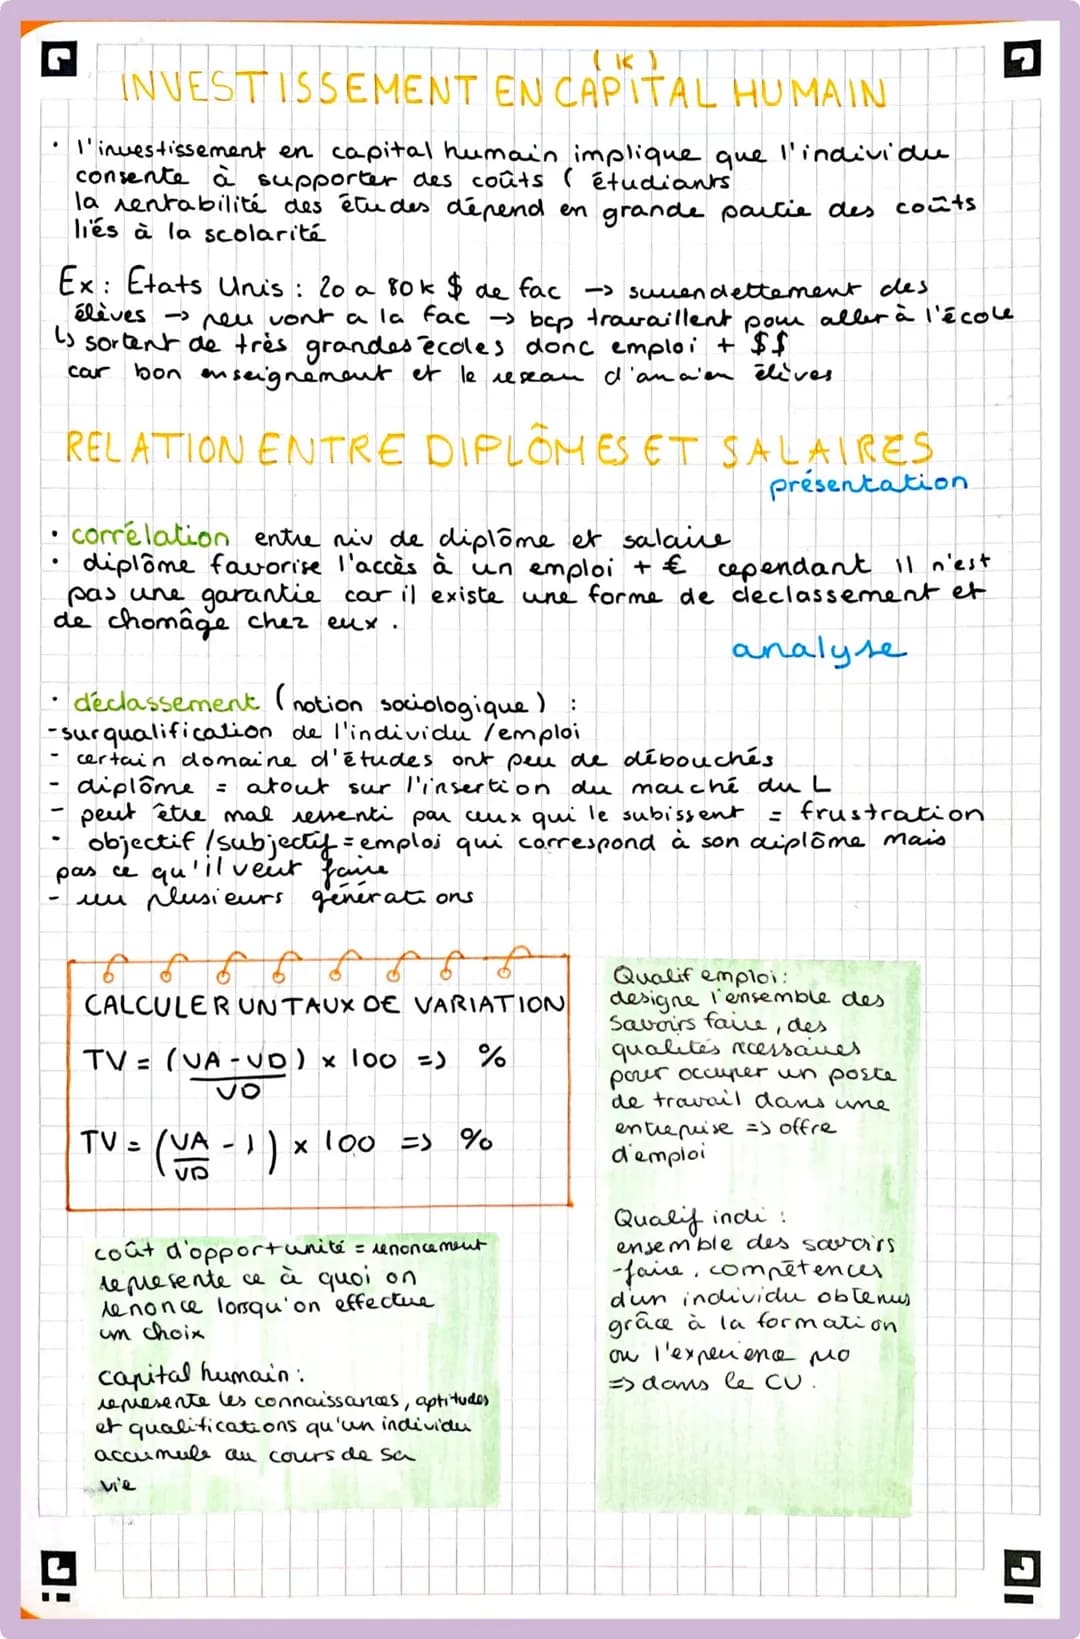 ( K )
INVESTISSEMENT EN CAPITAL HUMAIN
• l'investissement en capital humain implique que l'individu
consente à supporter des coûts ( étudiants
la rentabilité des études dépend en grande partie des coûts
liés à la scolarité
Ex : Etats Unis : 20 a 80k $ de fac -> surrendettement des
élèves -> peu vont a la fac -> bcp travaillent pour aller à l'école
↳ sortent de très grandes écoles donc emploi + $$
car bon enseignement et le reseau d'ancien élèves
RELATION ENTRE DIPLÔMES ET SALAIRES
présentation
• corrélation entre niv de diplôme et salaire
• diplôme favorise l'accès à un emploi + € cependant il n'est
pas une garantie car il existe une forme de declassement et
de chomâge chez eux .
analyse
• déclassement ( notion sociologique ) :
- surqualification de l'individu / emploi
- certain domaine d'études ont peu de débouchés
- diplôme = atout sur l'insertion du marché du L
- peut être mal ressenti par ceux qui le subissent = frustration
- objectif / subjectif = emploi qui correspond à son diplôme mais
pas ce qu'il veut faire
- plusieurs générations
CALCULER UN TAUX DE VARIATION
TV = (VA - VD) x 100 => %
VD
TV = (VA - 1) x 100 => %
VD
Qualif emploi :
designe l'ensemble des
savoirs faire, des
qualités necessaires
pour occuper un poste
de travail dans une
entreprise => offre
d'emploi
Qualif indi :
ensemble des savoirs
-faire, compétences
d'un individu obtenus
grâce à la formation
ou l'experience pro
=> dans le CV.
coût d'opportunité = renoncement
represente ce à quoi on
renonce lorsqu'on effectue
un choix
capital humain :
represente les connaissances, aptitudes
et qualifications qu'un individu
accumule au cours de sa
vie